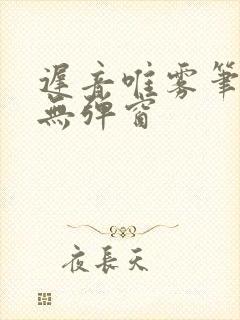 遲音唯雾筆
無弹窗
夜長天